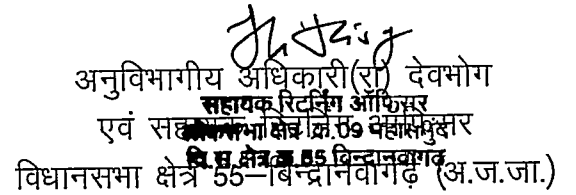 अनुविभागीय अधिकारी(रा) देवभोग
सहायक रिटर्निंग ऑफिसर
एवं सहायक रिटर्निंग ऑफिसर
लोकसभा क्षेत्र क्र.09 महासमुंद
वि.स. क्षेत्र क्र.55 बिन्द्रानवागढ़
विधानसभा क्षेत्र 55–बिन्द्रानवागढ़ (अ.ज.जा.)